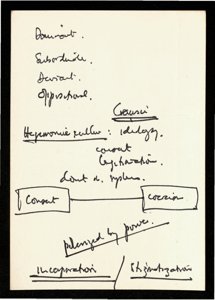 Dominant.
Subordinate.
Deviant.
Oppositional.
Gramsci
Hegemonic culture: ideology
consent
legitimation.
system.
Consent coercion
by power
incorporation / Stigmatization